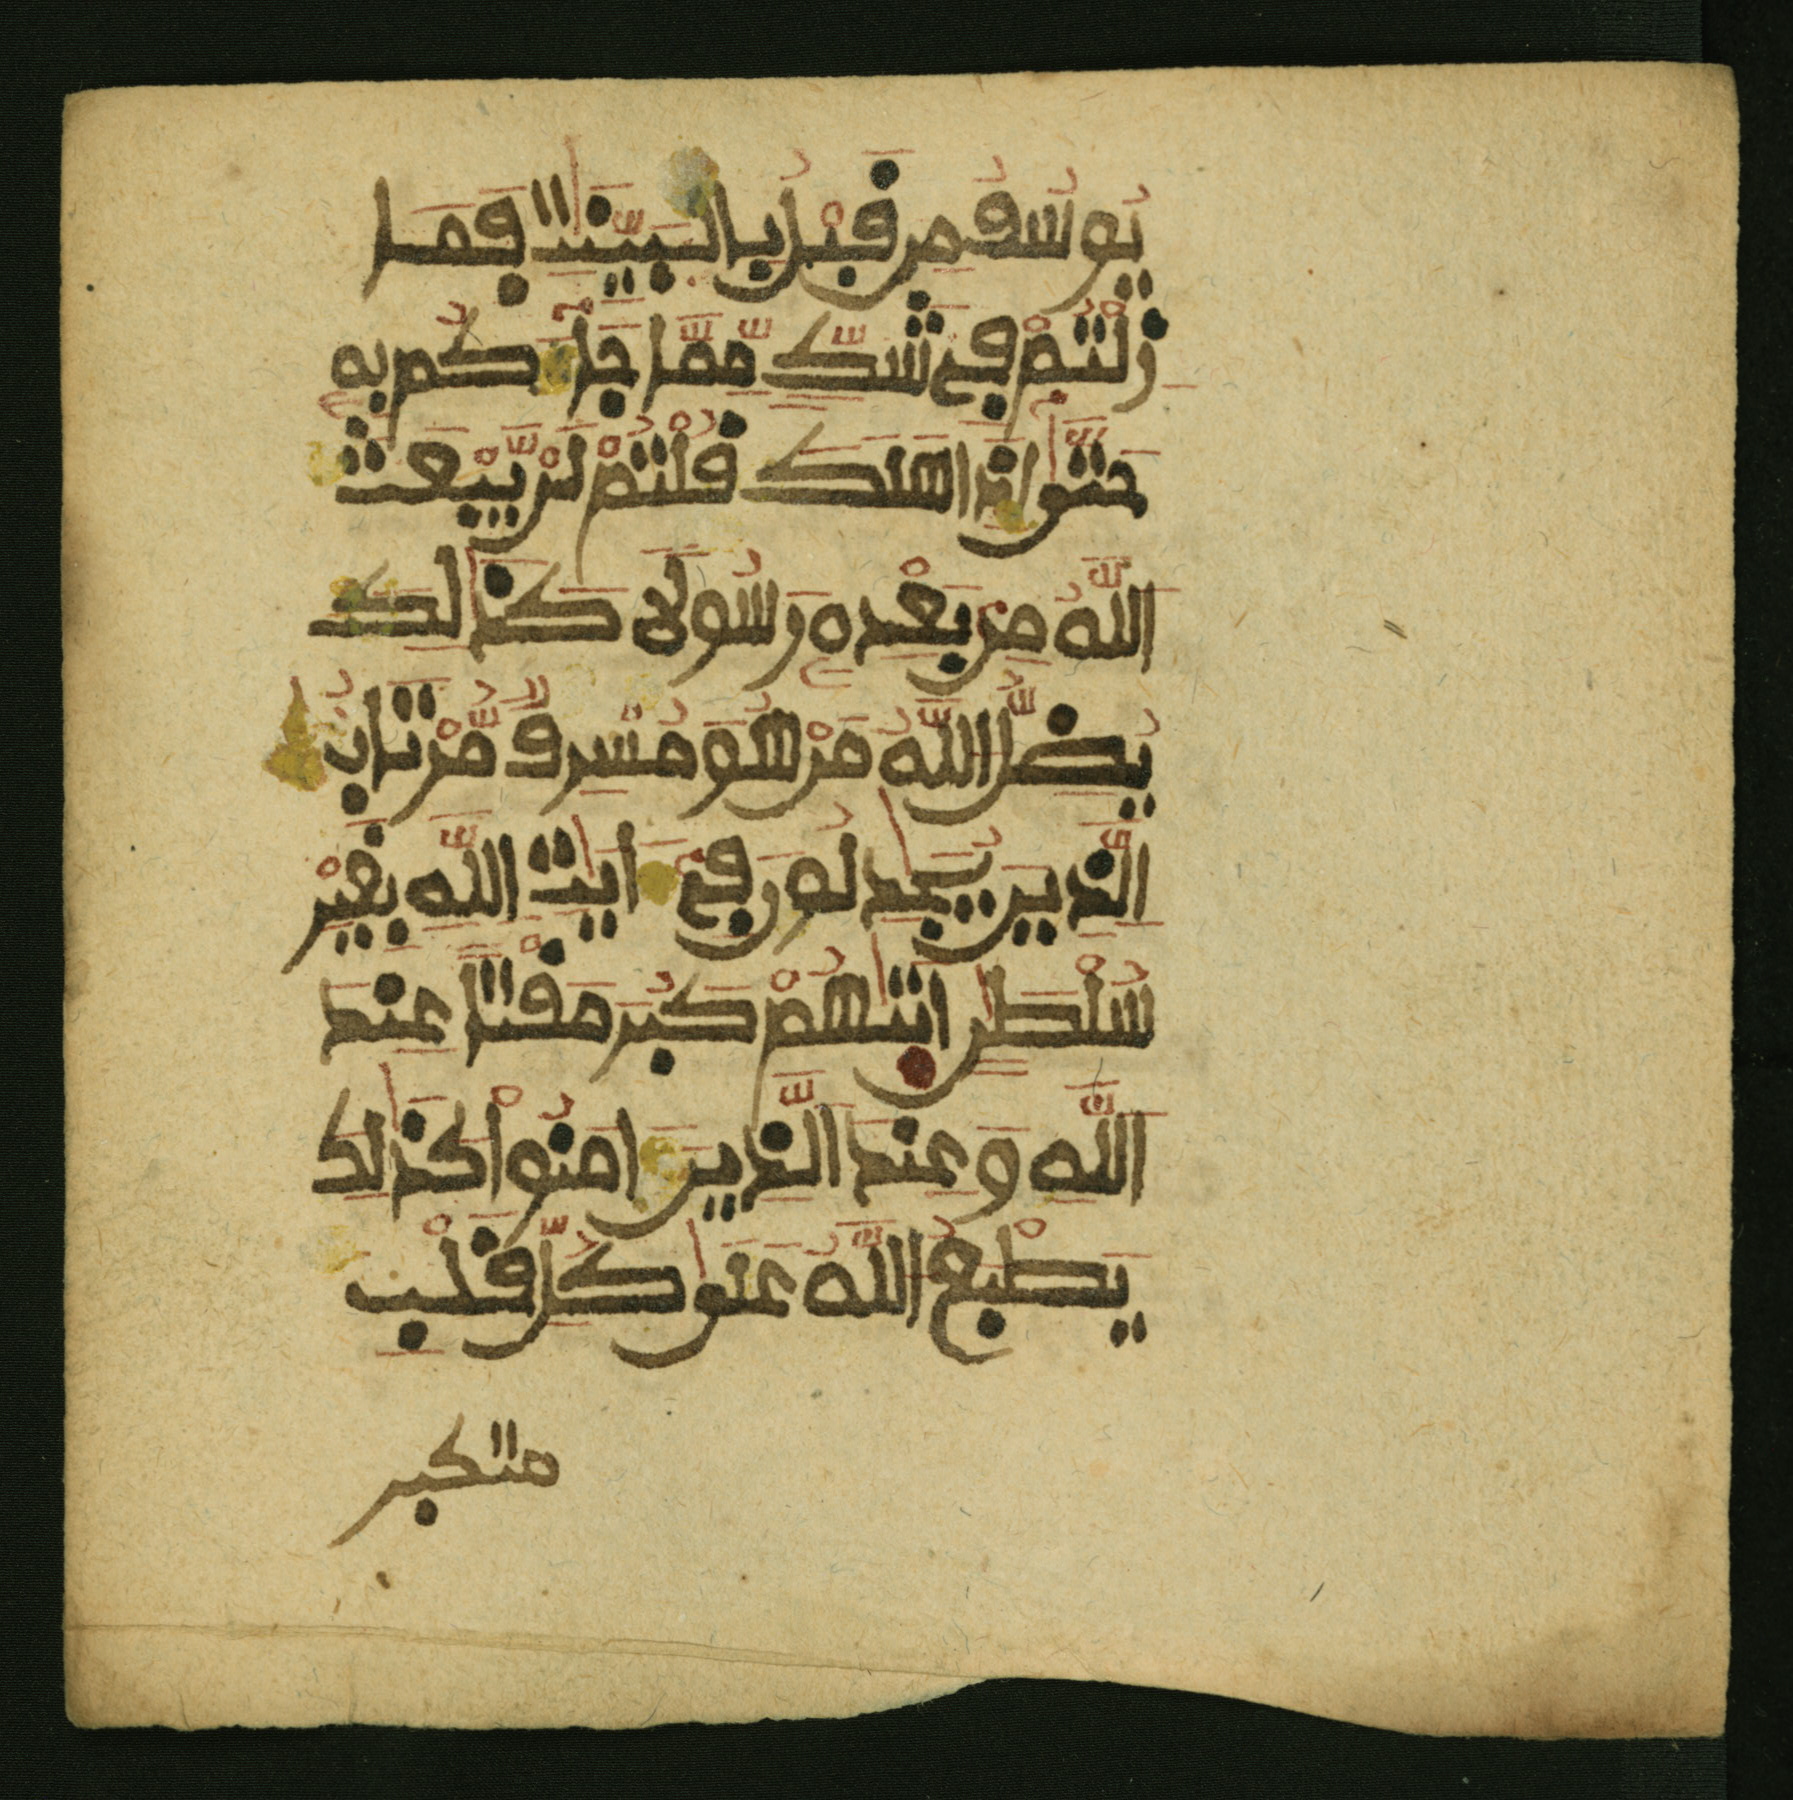 يُوسُفُ مِن قَبْلُ بِالْبَيِّنَٰتِ فَمَا
زِلْتُمْ فِے شَكّٖ مِّمَّا جَآءَكُم بِهِۦ
حَتَّىٰٓ إِذَا هَلَكَ قُلْتُمْ لَنْ يَّبْعَثَ
اَللَّهُ مِنۢ بَعْدِهِۦ رَسُولٗا كَذَٰلِكَ
يُضِلُّ اُللَّهُ مَنْ هُوَ مُسْرِفٞ مُّرْتَابٌ
اِلَّذِينَ يُجَٰدِلُونَ فِےٓ ءَايَٰتِ اِللَّهِ بِغَيْرِ
سُلْطَٰنٍ اَتَىٰهُمْ كَبُرَ مَقْتًا عِندَ
اَللَّهِ وَعِندَ اَلَّذِينَ ءَامَنُوا۟ كَذَٰلِكَ
يَطْبَعُ اُللَّهُ عَلَىٰ كُلِّ قَلْبِ
متكبر